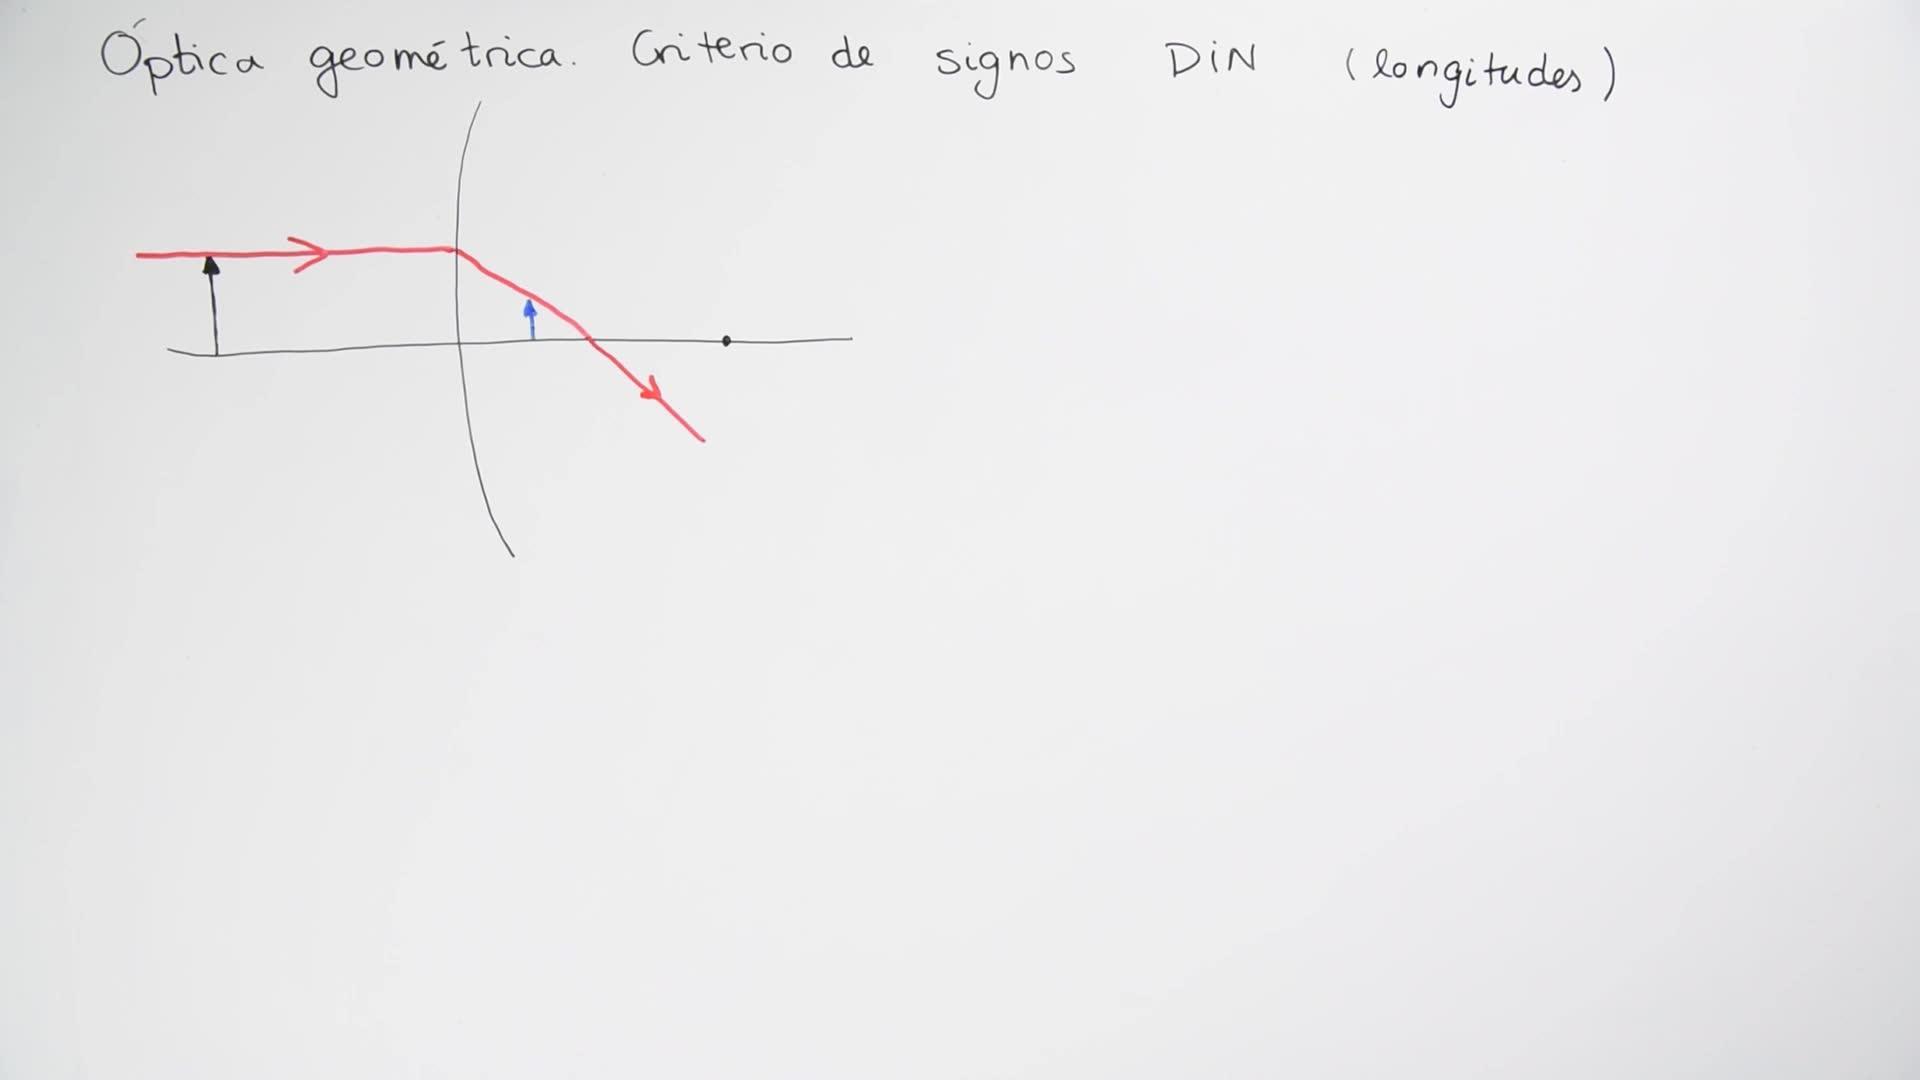 Óptica geométrica. Criterio de signos DiN (longitudes)